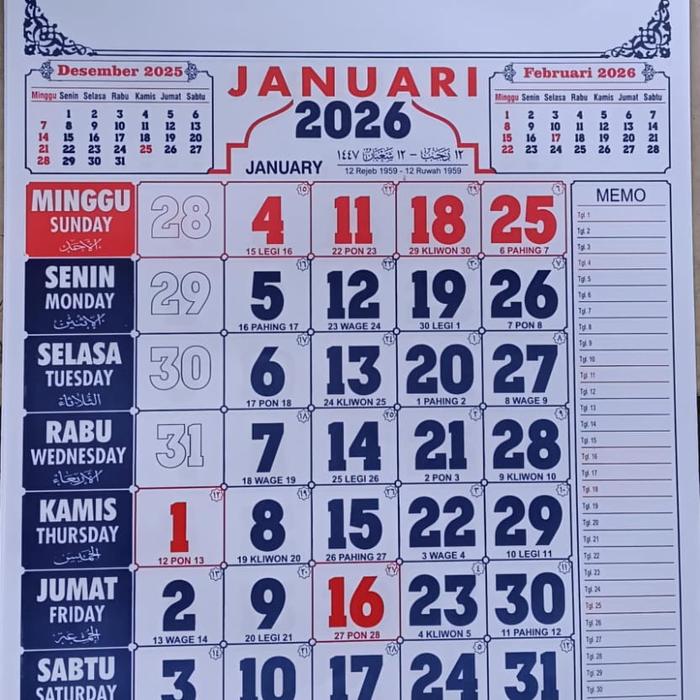 Desember 2025
Minggu Senin Selasa Rabu Kamis Jumat Sabtu
1 2 3 4 5 6
7 8 9 10 11 12 13
14 15 16 17 18 19 20
21 22 23 24 25 26 27
28 29 30 31
JANUARI
2026
JANUARY
١٢ رجب - ١٢ شعبان ١٤٤٧
12 Rejeb 1959 - 12 Ruwah 1959
Februari 2026
Minggu Senin Selasa Rabu Kamis Jumat Sabtu
1 2 3 4 5 6 7
8 9 10 11 12 13 14
15 16 17 18 19 20 21
22 23 24 25 26 27 28
MINGGU
SUNDAY
الأحد
28 4 11 18 25
15 LEGI 16 22 PON 23 29 KLIWON 30 6 PAHING 7
SENIN
MONDAY
الإثنين
29 5 12 19 26
16 PAHING 17 23 WAGE 24 30 LEGI 1 7 PON 8
SELASA
TUESDAY
الثلاثاء
30 6 13 20 27
17 PON 18 24 KLIWON 25 1 PAHING 2 8 WAGE 9
RABU
WEDNESDAY
الأربعاء
31 7 14 21 28
18 WAGE 19 25 LEGI 26 2 PON 3 9 KLIWON 10
KAMIS
THURSDAY
الخميس
1 8 15 22 29
12 PON 13 19 KLIWON 20 26 PAHING 27 3 WAGE 4 10 LEGI 11
JUMAT
FRIDAY
الجمعة
2 9 16 23 30
13 WAGE 14 20 LEGI 21 27 PON 28 4 KLIWON 5 11 PAHING 12
SABTU
SATURDAY
3 10 17 24 31
MEMO
Tgl. 1
Tgl. 2
Tgl. 3
Tgl. 4
Tgl. 5
Tgl. 6
Tgl. 7
Tgl. 8
Tgl. 9
Tgl. 10
Tgl. 11
Tgl. 12
Tgl. 13
Tgl. 14
Tgl. 15
Tgl. 16
Tgl. 17
Tgl. 18
Tgl. 19
Tgl. 20
Tgl. 21
Tgl. 22
Tgl. 23
Tgl. 24
Tgl. 25
Tgl. 26
Tgl. 27
Tgl. 28
Tgl. 29
Tgl. 30